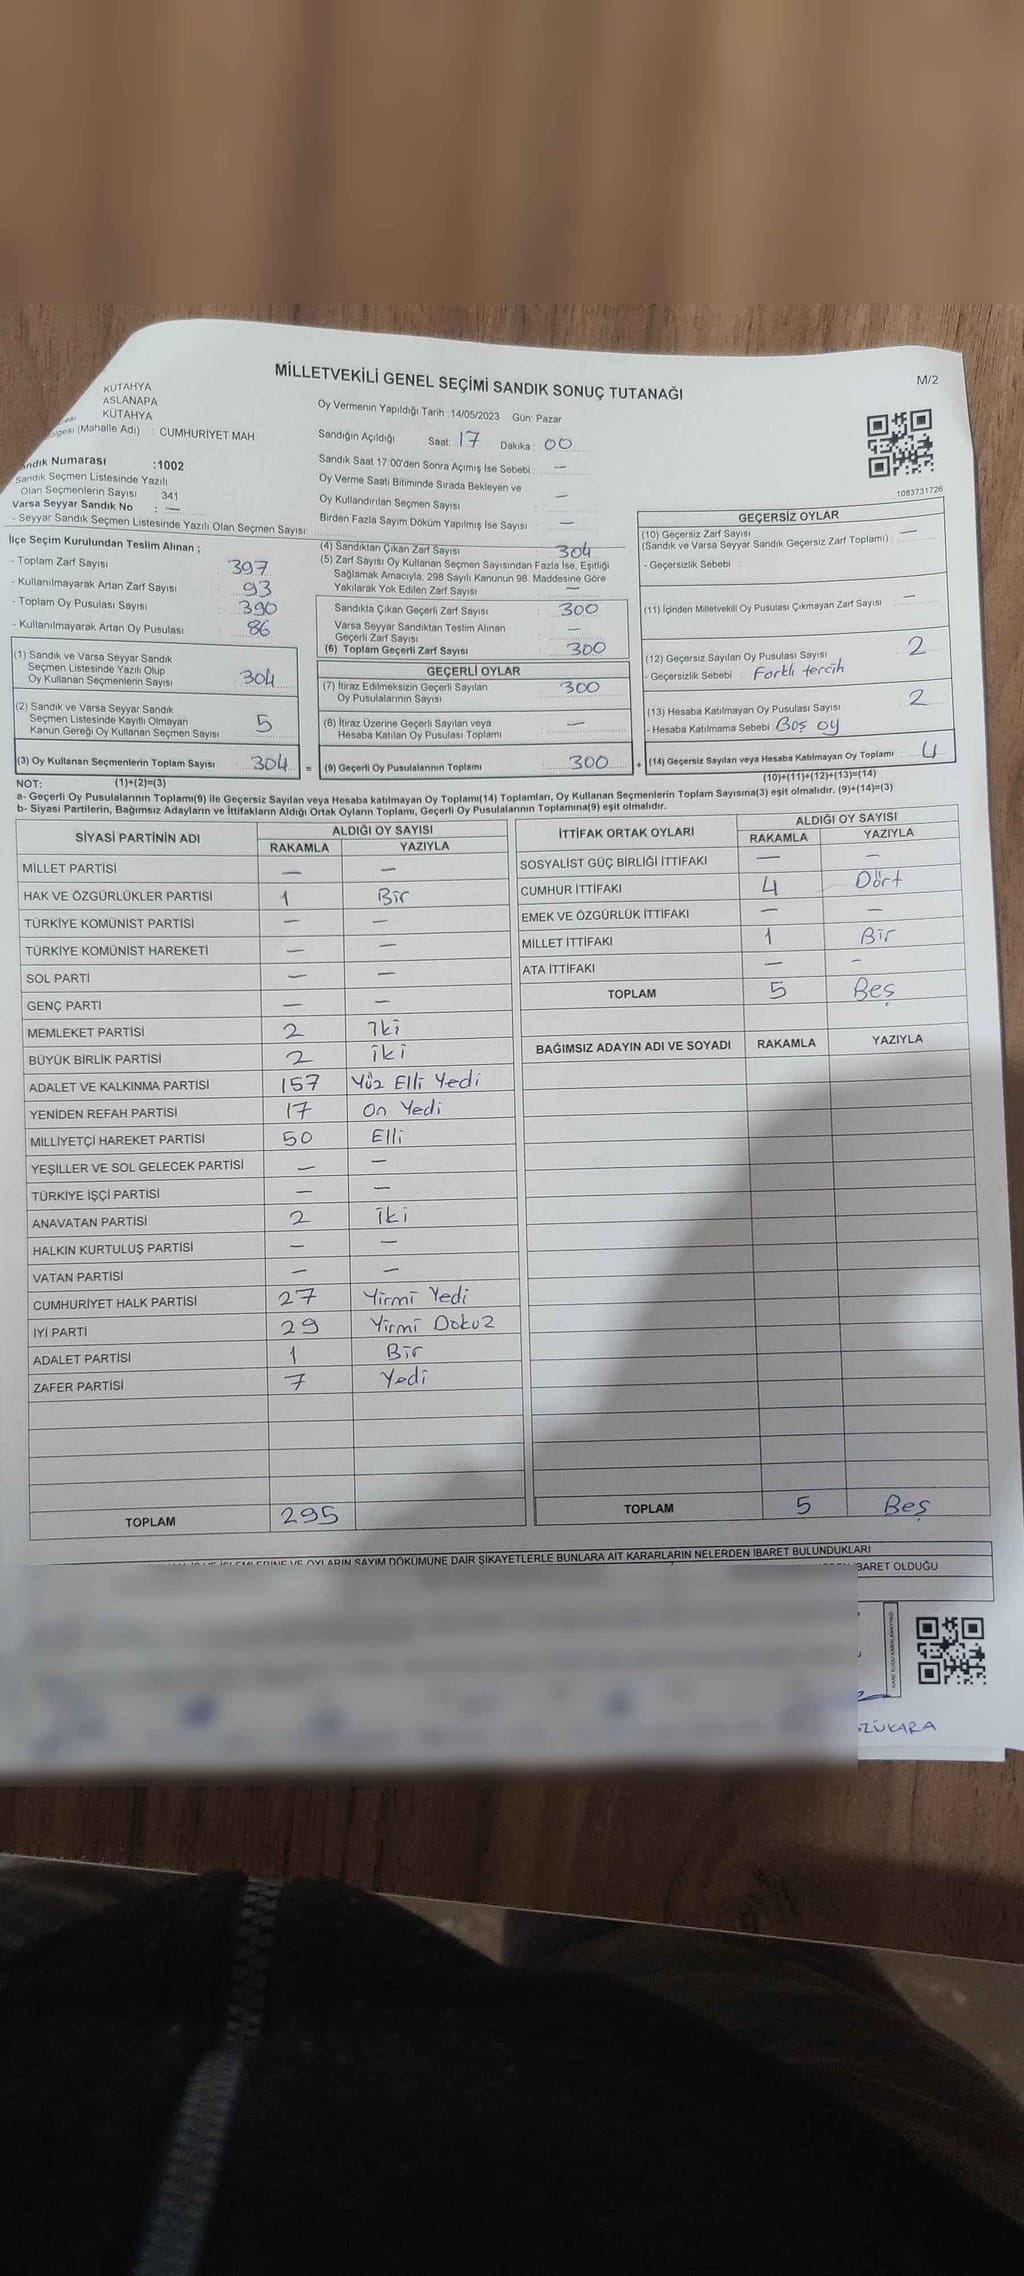 MİLLETVEKİLİ GENEL SEÇİMİ SANDIK SONUÇ TUTANAĞI
M/2
KÜTAHYA
ASLANAPA
KÜTAHYA
(Mahalle Adı) : CUMHURİYET MAH
Numarası :1002
Sandık Seçmen Listesinde Yazılı
Olan Seçmenlerin Sayısı : 341
Varsa Seyyar Sandık No : —
- Seyyar Sandık Seçmen Listesinde Yazılı Olan Seçmen Sayısı:
Oy Vermenin Yapıldığı Tarih :14/05/2023 Gün: Pazar
Sandığın Açıldığı Saat: 17 Dakika : 00
Sandık Saat 17:00'den Sonra Açımış İse Sebebi : —
Oy Verme Saati Bitiminde Sırada Bekleyen ve
Oy Kullandırılan Seçmen Sayısı : —
Birden Fazla Sayım Döküm Yapılmış İse Sayısı : —
1083731726
İlçe Seçim Kurulundan Teslim Alınan ;
- Toplam Zarf Sayısı : 397
- Kullanılmayarak Artan Zarf Sayısı : 93
- Toplam Oy Pusulası Sayısı : 390
- Kullanılmayarak Artan Oy Pusulası : 86
(1) Sandık ve Varsa Seyyar Sandık
Seçmen Listesinde Yazılı Olup
Oy Kullanan Seçmenlerin Sayısı : 304
(2) Sandık ve Varsa Seyyar Sandık
Seçmen Listesinde Kayıtlı Olmayan
Kanun Gereği Oy Kullanan Seçmen Sayısı : 5
(3) Oy Kullanan Seçmenlerin Toplam Sayısı : 304 =
(4) Sandıktan Çıkan Zarf Sayısı : 304
(5) Zarf Sayısı Oy Kullanan Seçmen Sayısından Fazla İse, Eşitliği
Sağlamak Amacıyla, 298 Sayılı Kanunun 98. Maddesine Göre
Yakılarak Yok Edilen Zarf Sayısı : —
Sandıkta Çıkan Geçerli Zarf Sayısı : 300
Varsa Seyyar Sandıktan Teslim Alınan
Geçerli Zarf Sayısı : —
(6) Toplam Geçerli Zarf Sayısı : 300
GEÇERLİ OYLAR
(7) İtiraz Edilmeksizin Geçerli Sayılan
Oy Pusulalarının Sayısı : 300
(8) İtiraz Üzerine Geçerli Sayılan veya
Hesaba Katılan Oy Pusulası Toplamı : —
(9) Geçerli Oy Pusulalarının Toplamı : 300 +
GEÇERSİZ OYLAR
(10) Geçersiz Zarf Sayısı
(Sandık ve Varsa Seyyar Sandık Geçersiz Zarf Toplamı) : —
- Geçersizlik Sebebi :
(11) İçinden Milletvekili Oy Pusulası Çıkmayan Zarf Sayısı : —
(12) Geçersiz Sayılan Oy Pusulası Sayısı : 2
- Geçersizlik Sebebi : Farklı tercih
(13) Hesaba Katılmayan Oy Pusulası Sayısı : 2
- Hesaba Katılmama Sebebi : Boş oy
(14) Geçersiz Sayılan veya Hesaba Katılmayan Oy Toplamı : 4
NOT: (1)+(2)=(3)
(10)+(11)+(12)+(13)=(14)
a- Geçerli Oy Pusulalarının Toplamı(9) ile Geçersiz Sayılan veya Hesaba katılmayan Oy Toplamı(14) Toplamları, Oy Kullanan Seçmenlerin Toplam Sayısına(3) eşit olmalıdır. (9)+(14)=(3)
b- Siyasi Partilerin, Bağımsız Adayların ve İttifakların Aldığı Ortak Oyların Toplamı, Geçerli Oy Pusulalarının Toplamına(9) eşit olmalıdır.
SİYASİ PARTİNİN ADI ALDIĞI OY SAYISI
RAKAMLA YAZIYLA
MİLLET PARTİSİ — —
HAK VE ÖZGÜRLÜKLER PARTİSİ 1 Bir
TÜRKİYE KOMÜNİST PARTİSİ — —
TÜRKİYE KOMÜNİST HAREKETİ — —
SOL PARTİ — —
GENÇ PARTİ — —
MEMLEKET PARTİSİ 2 İki
BÜYÜK BİRLİK PARTİSİ 2 iki
ADALET VE KALKINMA PARTİSİ 157 Yüz Elli Yedi
YENİDEN REFAH PARTİSİ 17 On Yedi
MİLLİYETÇİ HAREKET PARTİSİ 50 Elli
YEŞİLLER VE SOL GELECEK PARTİSİ — —
TÜRKİYE İŞÇİ PARTİSİ — —
ANAVATAN PARTİSİ 2 İki
HALKIN KURTULUŞ PARTİSİ — —
VATAN PARTİSİ — —
CUMHURİYET HALK PARTİSİ 27 Yirmi Yedi
İYİ PARTİ 29 Yirmi Dokuz
ADALET PARTİSİ 1 Bir
ZAFER PARTİSİ 7 Yedi
TOPLAM 295
İTTİFAK ORTAK OYLARI ALDIĞI OY SAYISI
RAKAMLA YAZIYLA
SOSYALİST GÜÇ BİRLİĞİ İTTİFAKI — —
CUMHUR İTTİFAKI 4 Dört
EMEK VE ÖZGÜRLÜK İTTİFAKI — —
MİLLET İTTİFAKI 1 Bir
ATA İTTİFAKI — —
TOPLAM 5 Beş
BAĞIMSIZ ADAYIN ADI VE SOYADI RAKAMLA YAZIYLA
TOPLAM 5 Beş
VE OYLARIN SAYIM DÖKÜMÜNE DAİR ŞİKAYETLERLE BUNLARA AİT KARARLARIN NELERDEN İBARET BULUNDUKLARI
İBARET OLDUĞU